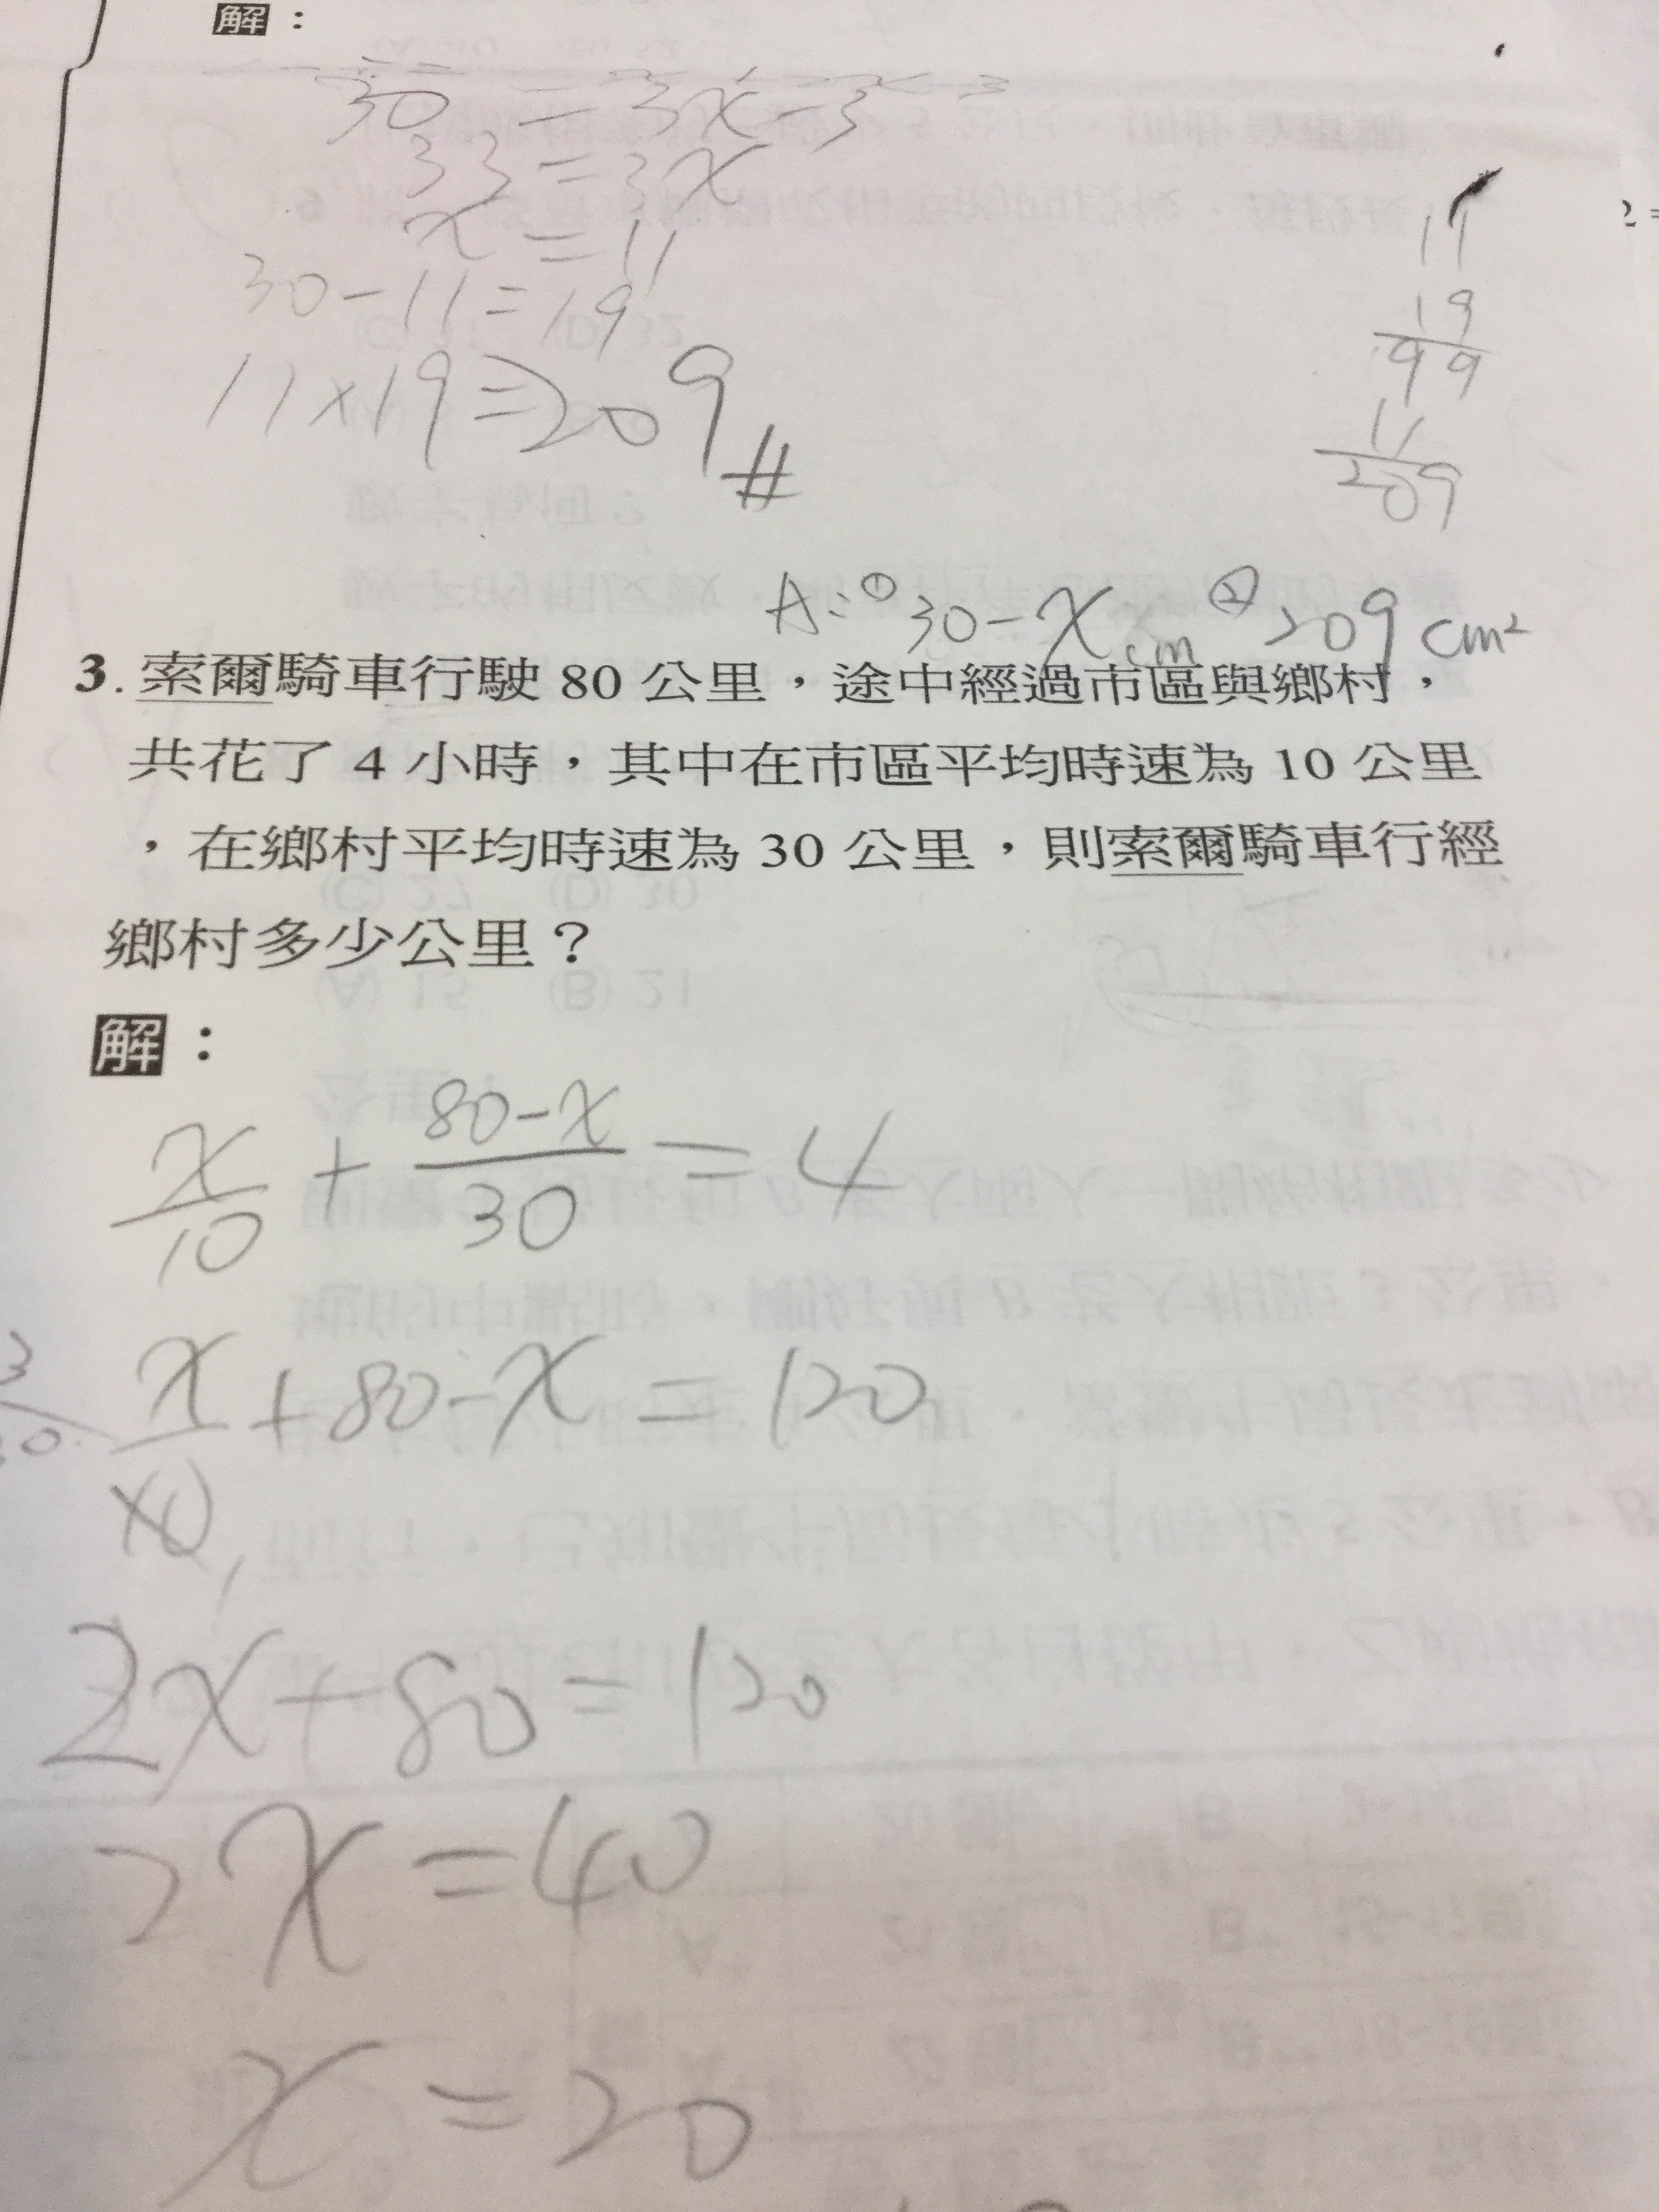 解：
30 = 3x-3
33 = 3x
x = 11
30-11=19
11×19=209#
11
19
99
11
209
A:① 30-x cm ② 209 cm²
3. 索爾騎車行駛 80 公里，途中經過市區與鄉村，
共花了 4 小時，其中在市區平均時速為 10 公里
，在鄉村平均時速為 30 公里，則索爾騎車行經
鄉村多少公里？
解：
x/10 + 80-x/30 = 4
x/10 +80-x = 120
2x+80=120
2x=40
x=20